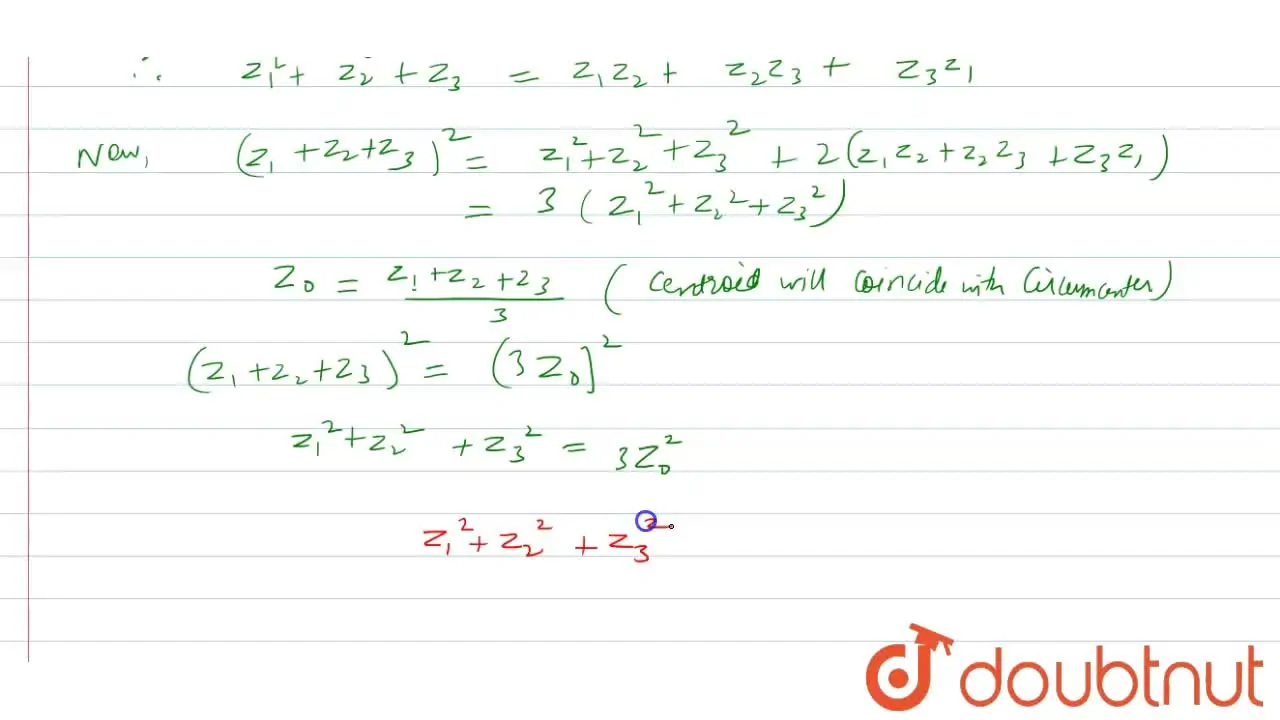 ∴ z₁² + z₂² + z₃ = z₁z₂ + z₂z₃ + z₃z₁
Now, (z₁ + z₂ + z₃)² = z₁² + z₂² + z₃² + 2(z₁z₂ + z₂z₃ + z₃z₁)
= 3 (z₁² + z₂² + z₃²)
z₀ = (z₁ + z₂ + z₃)/3 (Centroid will coincide with Circumcenter)
(z₁ + z₂ + z₃)² = (3z₀]²
z₁² + z₂² + z₃² = 3z₀²
z₁² + z₂² + z₃²
doubtnut